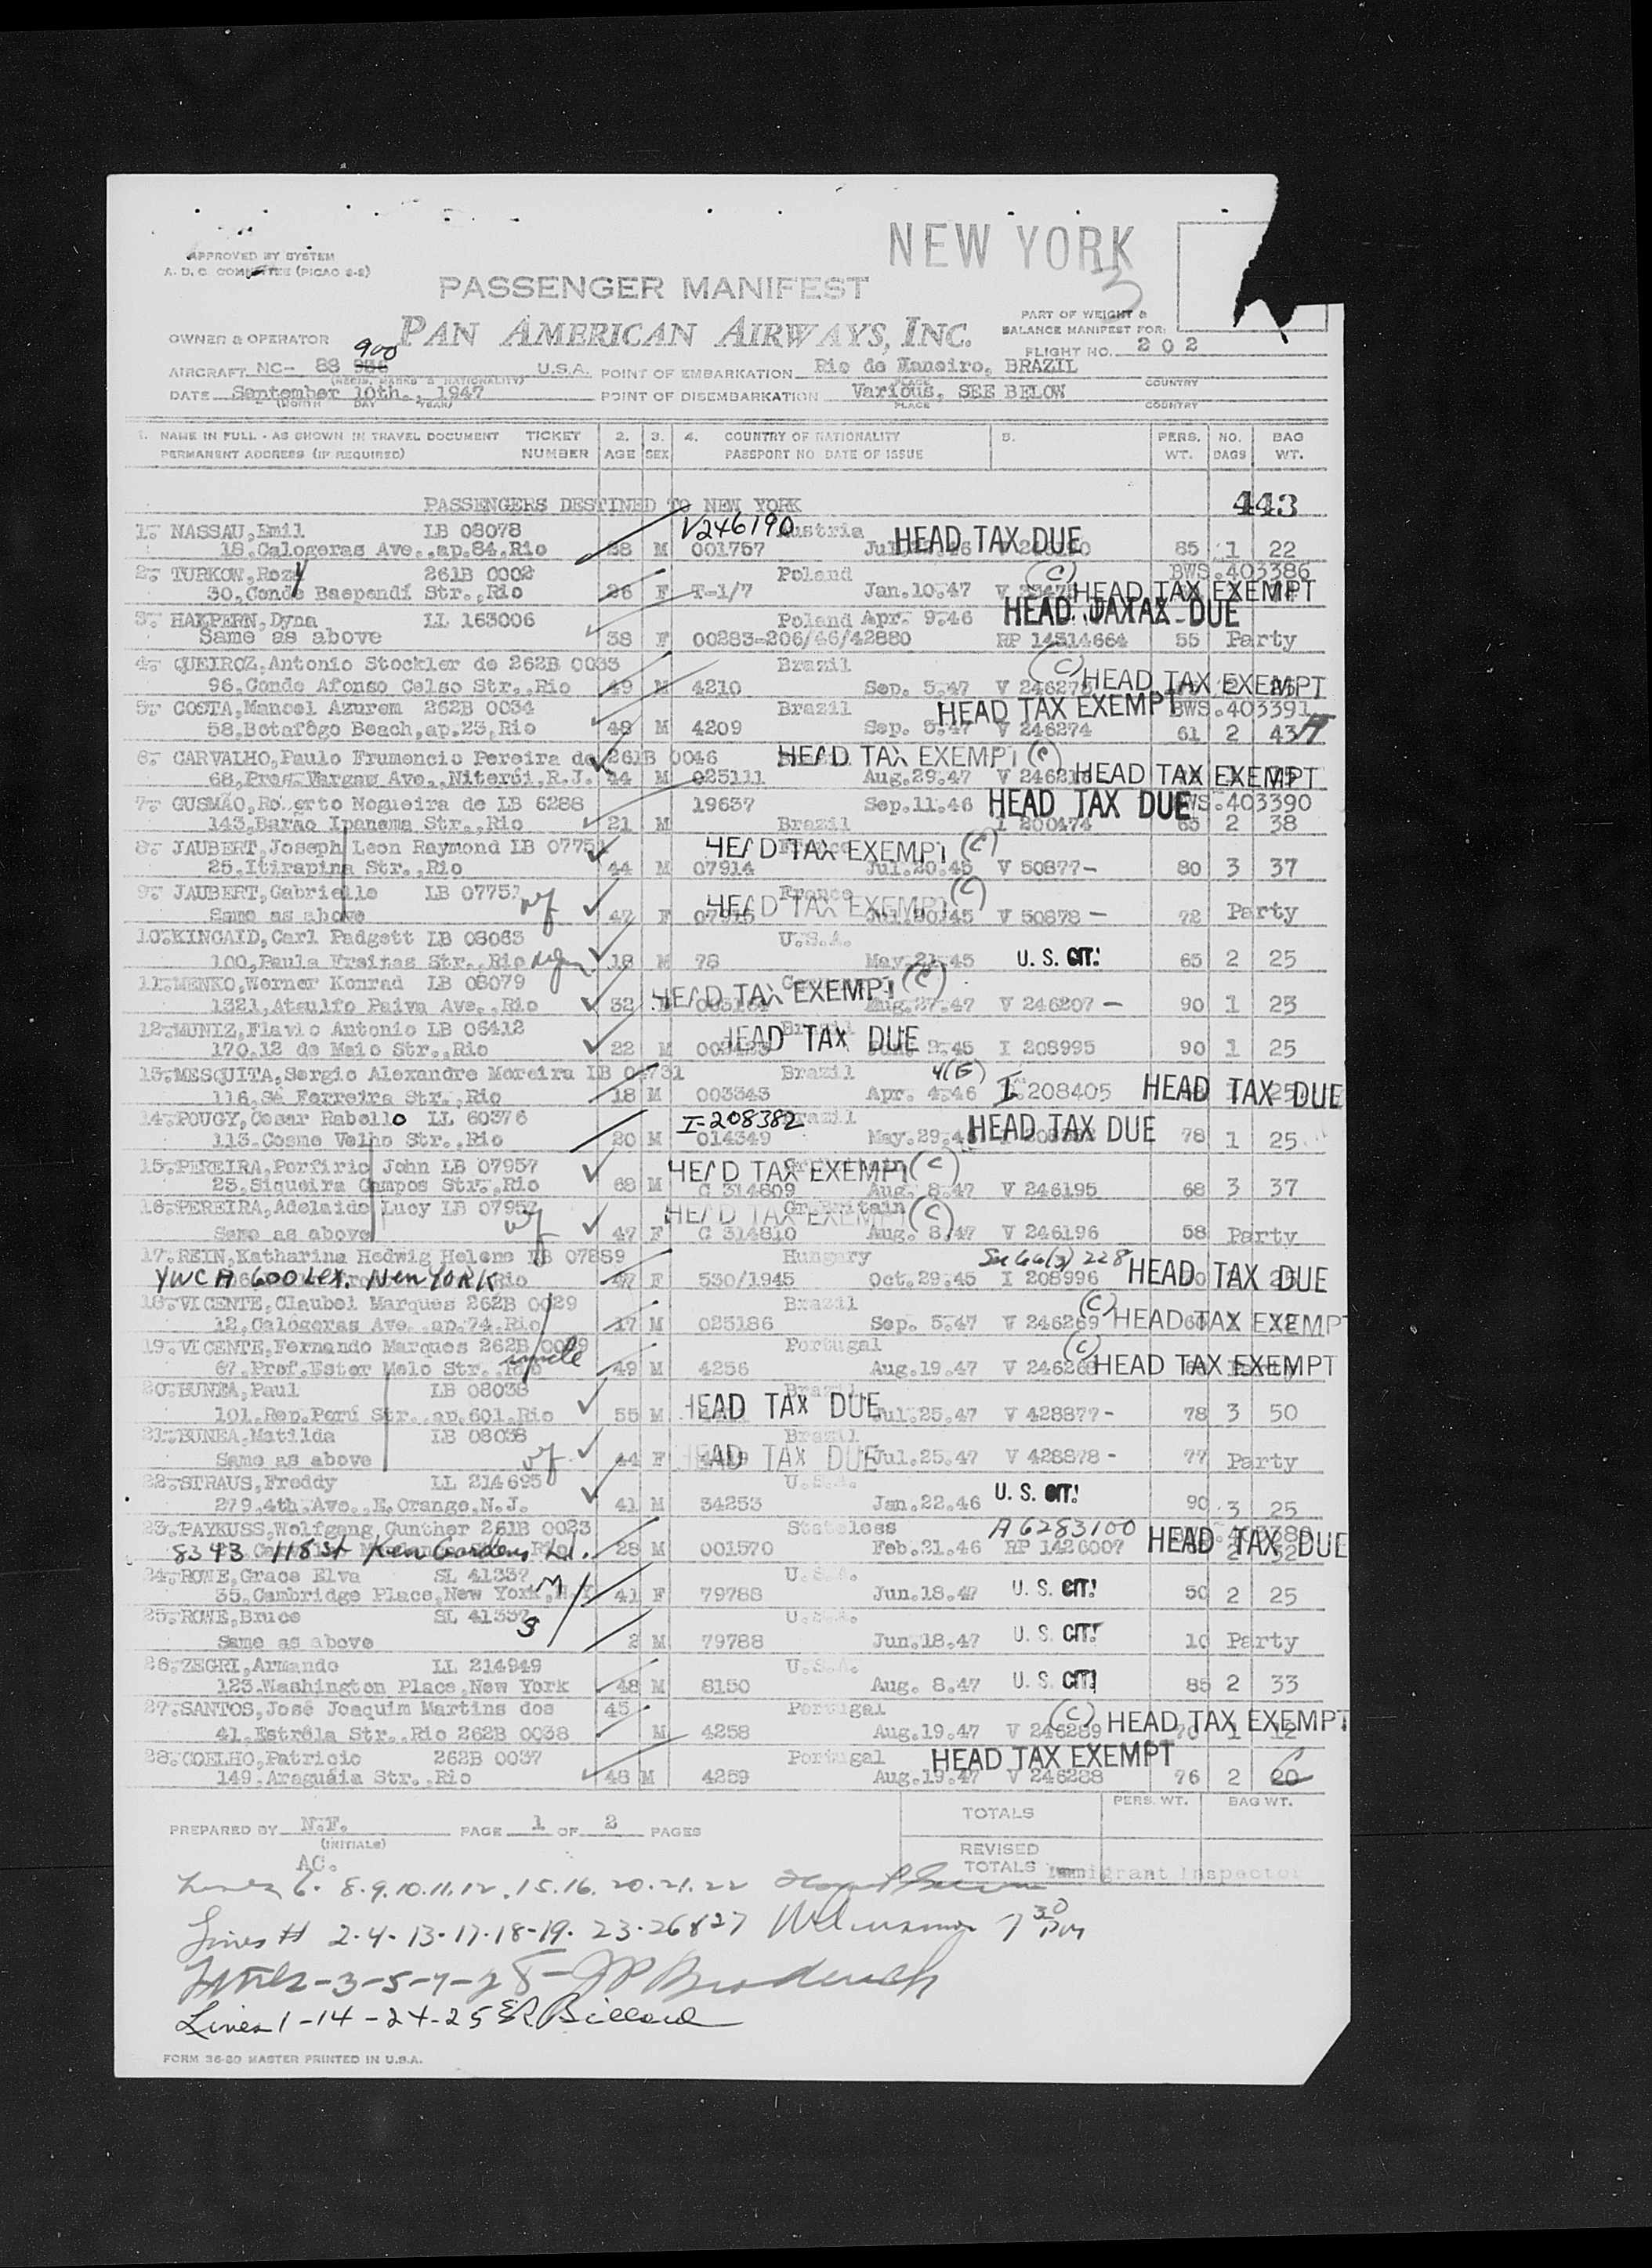 NEW YORK
3
APPROVED BY SYSTEM
A. D. C. COMMITTEE (PICAO 2-2)
PASSENGER MANIFEST
PART OF WEIGHT &
BALANCE MANIFEST FOR:
OWNER & OPERATOR PAN AMERICAN AIRWAYS, INC.
FLIGHT NO. 202
900
AIRCRAFT NC- 88 U.S.A. POINT OF EMBARKATION Rio de Janeiro, BRAZIL
(REGIS. MARKS & NATIONALITY) PLACE COUNTRY
DATE September 10th., 1947 POINT OF DISEMBARKATION Various, SEE BELOW
(MONTH DAY YEAR) PLACE COUNTRY
1. NAME IN FULL - AS SHOWN IN TRAVEL DOCUMENT TICKET 2. 3. 4. COUNTRY OF NATIONALITY 5. PERS. NO. BAG
PERMANENT ADDRESS (IF REQUIRED) NUMBER AGE SEX PASSPORT NO DATE OF ISSUE WT. BAGS WT.
PASSENGERS DESTINED TO NEW YORK 443
1. NASSAU, Emil LB 08078 V246190 Austria HEAD TAX DUE
18,Calogeras Ave.,ap.84,Rio 38 M 001757 85 1 22
2. TURKOW, Rozy 261B 0002 Poland (C) BWS.403386
30,Conde Baependí Str.,Rio 26 F T-1/7 Jan.10.47 HEAD TAX EXEMPT
3. HALPERN, Dyna LL 163006 Poland Apr. 9.46 HEAD TAX DUE
Same as above 38 F 00283-206/46/42880 RP 14314664 55 Party
4. QUEIROZ, Antonio Stockler de 262B 0033 Brazil (C)
96,Conde Afonso Celso Str.,Rio 49 M 4210 Sep. 5.47 V 246275 HEAD TAX EXEMPT
5. COSTA, Manoel Azurem 262B 0034 Brazil HEAD TAX EXEMPT BWS.403391
58,Botafôgo Beach,ap.23,Rio 48 M 4209 Sep. 5.47 V 246274 61 2 43
6. CARVALHO, Paulo Frumencio Pereira de 261B 0046 HEAD TAX EXEMPT (C)
68,Pres.Vargas Ave.,Niterói,R.J. 44 M 025111 Aug.29.47 HEAD TAX EXEMPT
7. GUSMÃO, Roberto Nogueira de LB 6288 19637 Sep.11.46 HEAD TAX DUE BWS.403390
143,Barão Ipanema Str.,Rio 21 M Brazil I 200474 65 2 38
8. JAUBERT, Joseph Leon Raymond LB 07751 HEAD TAX EXEMPT (C)
25,Itirapina Str.,Rio 44 M 07914 Jul.20.45 V 50877- 80 3 37
9. JAUBERT, Gabrielle LB 07751 wf France (C)
Same as above 47 F 07915 HEAD TAX EXEMPT Jul.20.45 V 50878 - 72 Party
10. KINCAID, Carl Padgett LB 08063 U.S.A.
100,Paula Freitas Str.,Rio 18 M 78 May.21.45 U. S. CIT. 65 2 25
11. MENKO, Werner Konrad LB 08079 HEAD TAX EXEMPT (C)
1321,Ataulfo Paiva Ave.,Rio 32 M Aug.27.47 V 246207 - 90 1 23
12. MUNIZ, Flavio Antonio LB 06412 Brazil HEAD TAX DUE
170,12 de Maio Str.,Rio 22 M I 208995 90 1 25
13. MESQUITA, Sergio Alexandre Moreira LB 04731 Brazil 4(E)
116,Sá Ferreira Str.,Rio 18 M 003343 Apr. 4.46 I 208405 HEAD TAX DUE
14. POUGY, Cesar Rabello LL 60376 I-208382 Brazil
113,Cosme Velho Str.,Rio 20 M 014349 HEAD TAX DUE 78 1 25
15. PEREIRA, Porfirio John LB 07957 HEAD TAX EXEMPT (C)
25,Siqueira Campos Str.,Rio 68 M C 314809 Aug. 8.47 V 246195 68 3 37
16. PEREIRA, Adelaide Lucy LB 07957 wf HEAD TAX EXEMPT Gr.Britain (C)
Same as above 47 F C 314810 Aug. 8.47 V 246196 58 Party
17. REIN, Katharina Hedwig Helene LB 07889 Hungary
YWCA 600 Lex. New York Rio 47 F 530/1945 Oct.29.45 I 208996 HEAD TAX DUE
18. VICENTE, Claubel Marques 262B 0029 Brazil (C)
12,Calógeras Ave.,ap.74,Rio 17 M 025186 Sep. 5.47 V 246269 HEAD TAX EXEMPT
19. VICENTE, Fernando Marques 262B 0029 uncle Portugal (C)
67,Prof.Ester Melo Str.,Rio 49 M 4256 Aug.19.47 V 246268 HEAD TAX EXEMPT
20. BUNEA, Paul LB 08038 Brazil
101,Rep.Perú Str.,ap.601,Rio 55 M HEAD TAX DUE Jul.25.47 V 428877- 78 3 50
21. BUNEA, Matilda LB 08038 wf Brazil
Same as above 44 F HEAD TAX DUE Jul.25.47 V 428878 - 77 Party
22. STRAUS, Freddy LL 214695 U.S.A.
279,4th Ave.,E.Orange,N.J. 41 M 34253 Jan.22.46 U. S. CIT. 90 3 25
23. PAYKUSS, Wolfgang Gunther 261B 0023 Stateless A6283100
8343 118 St Kew Gardens L.I. 28 M 001570 Feb.21.46 RP 1426007 HEAD TAX DUE
24. ROWE, Grace Elva SL 41337 M U.S.A.
35,Cambridge Place,New York,N.Y. 41 F 79788 Jun.18.47 U. S. CIT. 50 2 25
25. ROWE, Bruce SL 41337 S U.S.A.
Same as above 2 M 79788 Jun.18.47 U. S. CIT. 10 Party
26. ZEGRI, Armando LL 214949 U.S.A.
123,Washington Place,New York 48 M 8150 Aug. 8.47 U. S. CIT. 85 2 33
27. SANTOS, José Joaquim Martins dos 45 Portugal (C)
41,Estrêla Str.,Rio 262B 0038 M 4258 Aug.19.47 V 246289 HEAD TAX EXEMPT 70 1 12
28. COELHO, Patricio 262B 0037 Portugal HEAD TAX EXEMPT
149,Araguáia Str.,Rio 48 M 4259 Aug.19.47 V 246288 76 2 20
PREPARED BY N.F. PAGE 1 OF 2 PAGES TOTALS PERS. WT. BAG WT.
(INITIALS)
AC.
REVISED
TOTALS Immigrant Inspector
Lines 6. 8.9.10.11.12.15.16.20.21.22
Lines # 2-4-13-17-18-19-23-26&27 7 30 PM
Lines-3-5-7-28- JP Broderick
Lines 1-14-24-25 ER Billard
FORM 36-80 MASTER PRINTED IN U.S.A.